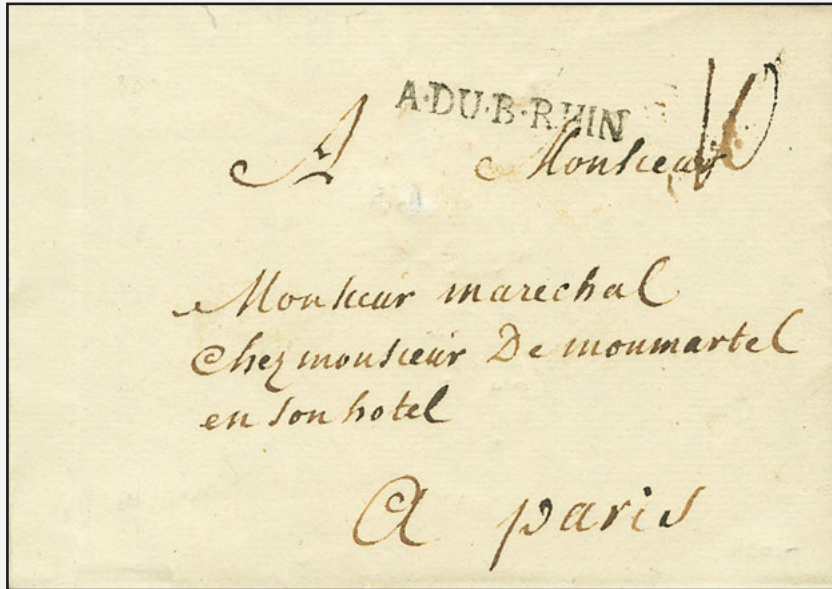 A·DU·B·RHIN
A Monsieur
Monsieur marechal
Chez monsieur De moumartel
en son hotel
A paris